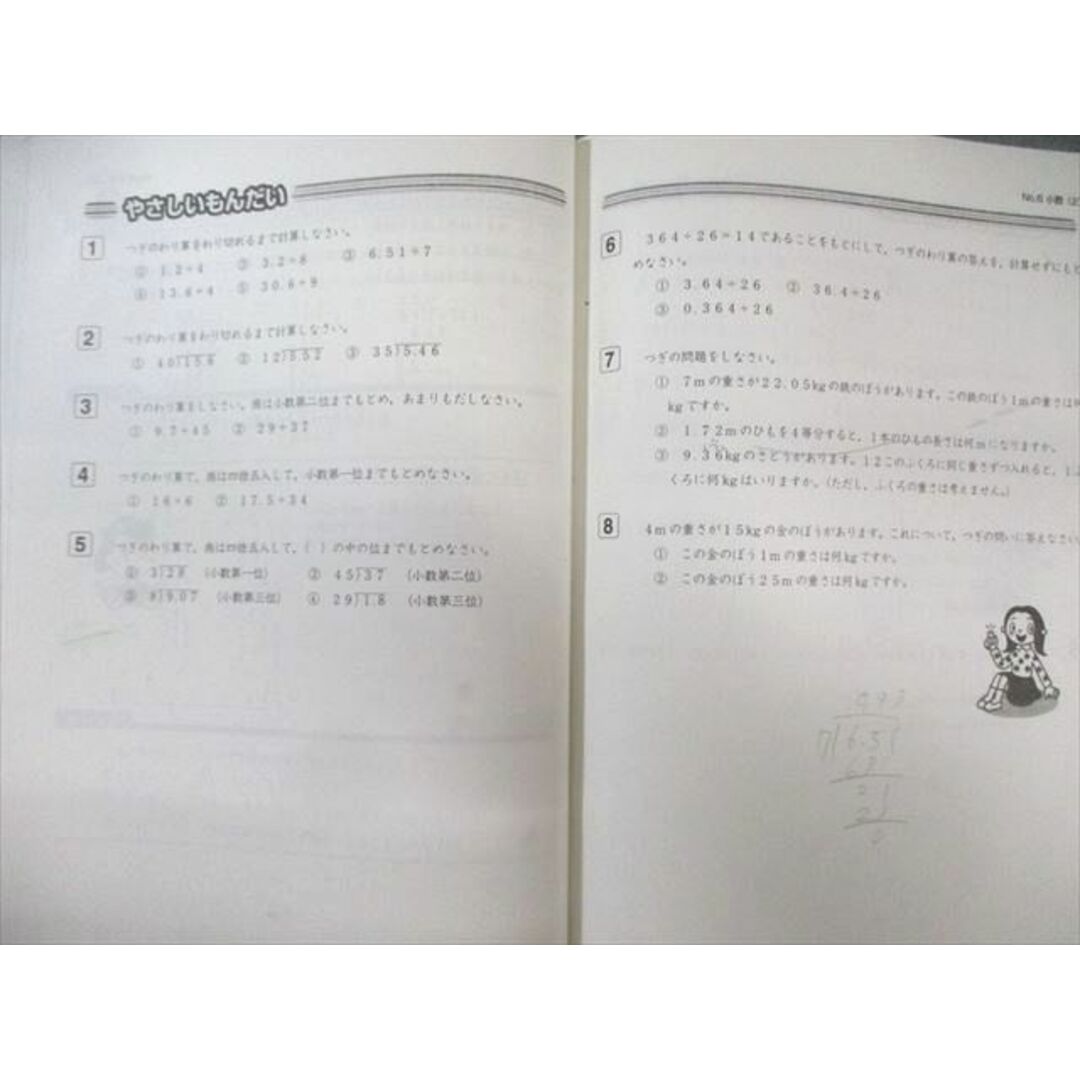 やさしいもんだい
1 つぎのわり算をわり切れるまで計算しなさい。
① 1.2÷4 ② 3.2÷8 ③ 6.51÷7
④ 13.6÷4 ⑤ 30.6÷9
2 つぎのわり算をわり切れるまで計算しなさい。
① 40)156 ② 12)5.52 ③ 35)5.46
3 つぎのわり算をしなさい。商は小数第二位までもとめ、あまりもだしなさい。
① 9.7÷45 ② 29÷37
4 つぎのわり算で、商は四捨五入して、小数第一位までもとめなさい。
① 16÷6 ② 17.5÷34
5 つぎのわり算で、商は四捨五入して、( )の中の位までもとめなさい。
① 3)28 (小数第一位) ② 45)37 (小数第二位)
③ 8)9.07 (小数第三位) ④ 29)1.8 (小数第三位)
No.6 小数(2
6 364÷26=14であることをもとにして、つぎのわり算の答えを、計算せずにもと
めなさい。
① 3.64÷26 ② 36.4÷26
③ 0.364÷26
7 つぎの問題をしなさい。
① 7mの重さが22.05kgの鉄のぼうがあります。この鉄のぼう1mの重さは何
kgですか。
② 1.72mのひもを4等分すると、1本のひもの長さは何mになりますか。
③ 9.36kgのさとうがあります。12このふくろに同じ重さずつ入れると、1ふ
くろに何kgはいりますか。(ただし、ふくろの重さは考えません。)
8 4mの重さが15kgの金のぼうがあります。これについて、つぎの問いに答えなさい
① この金のぼう1mの重さは何kgですか。
② この金のぼう25mの重さは何kgですか。
7)6.51
63
21
21
0